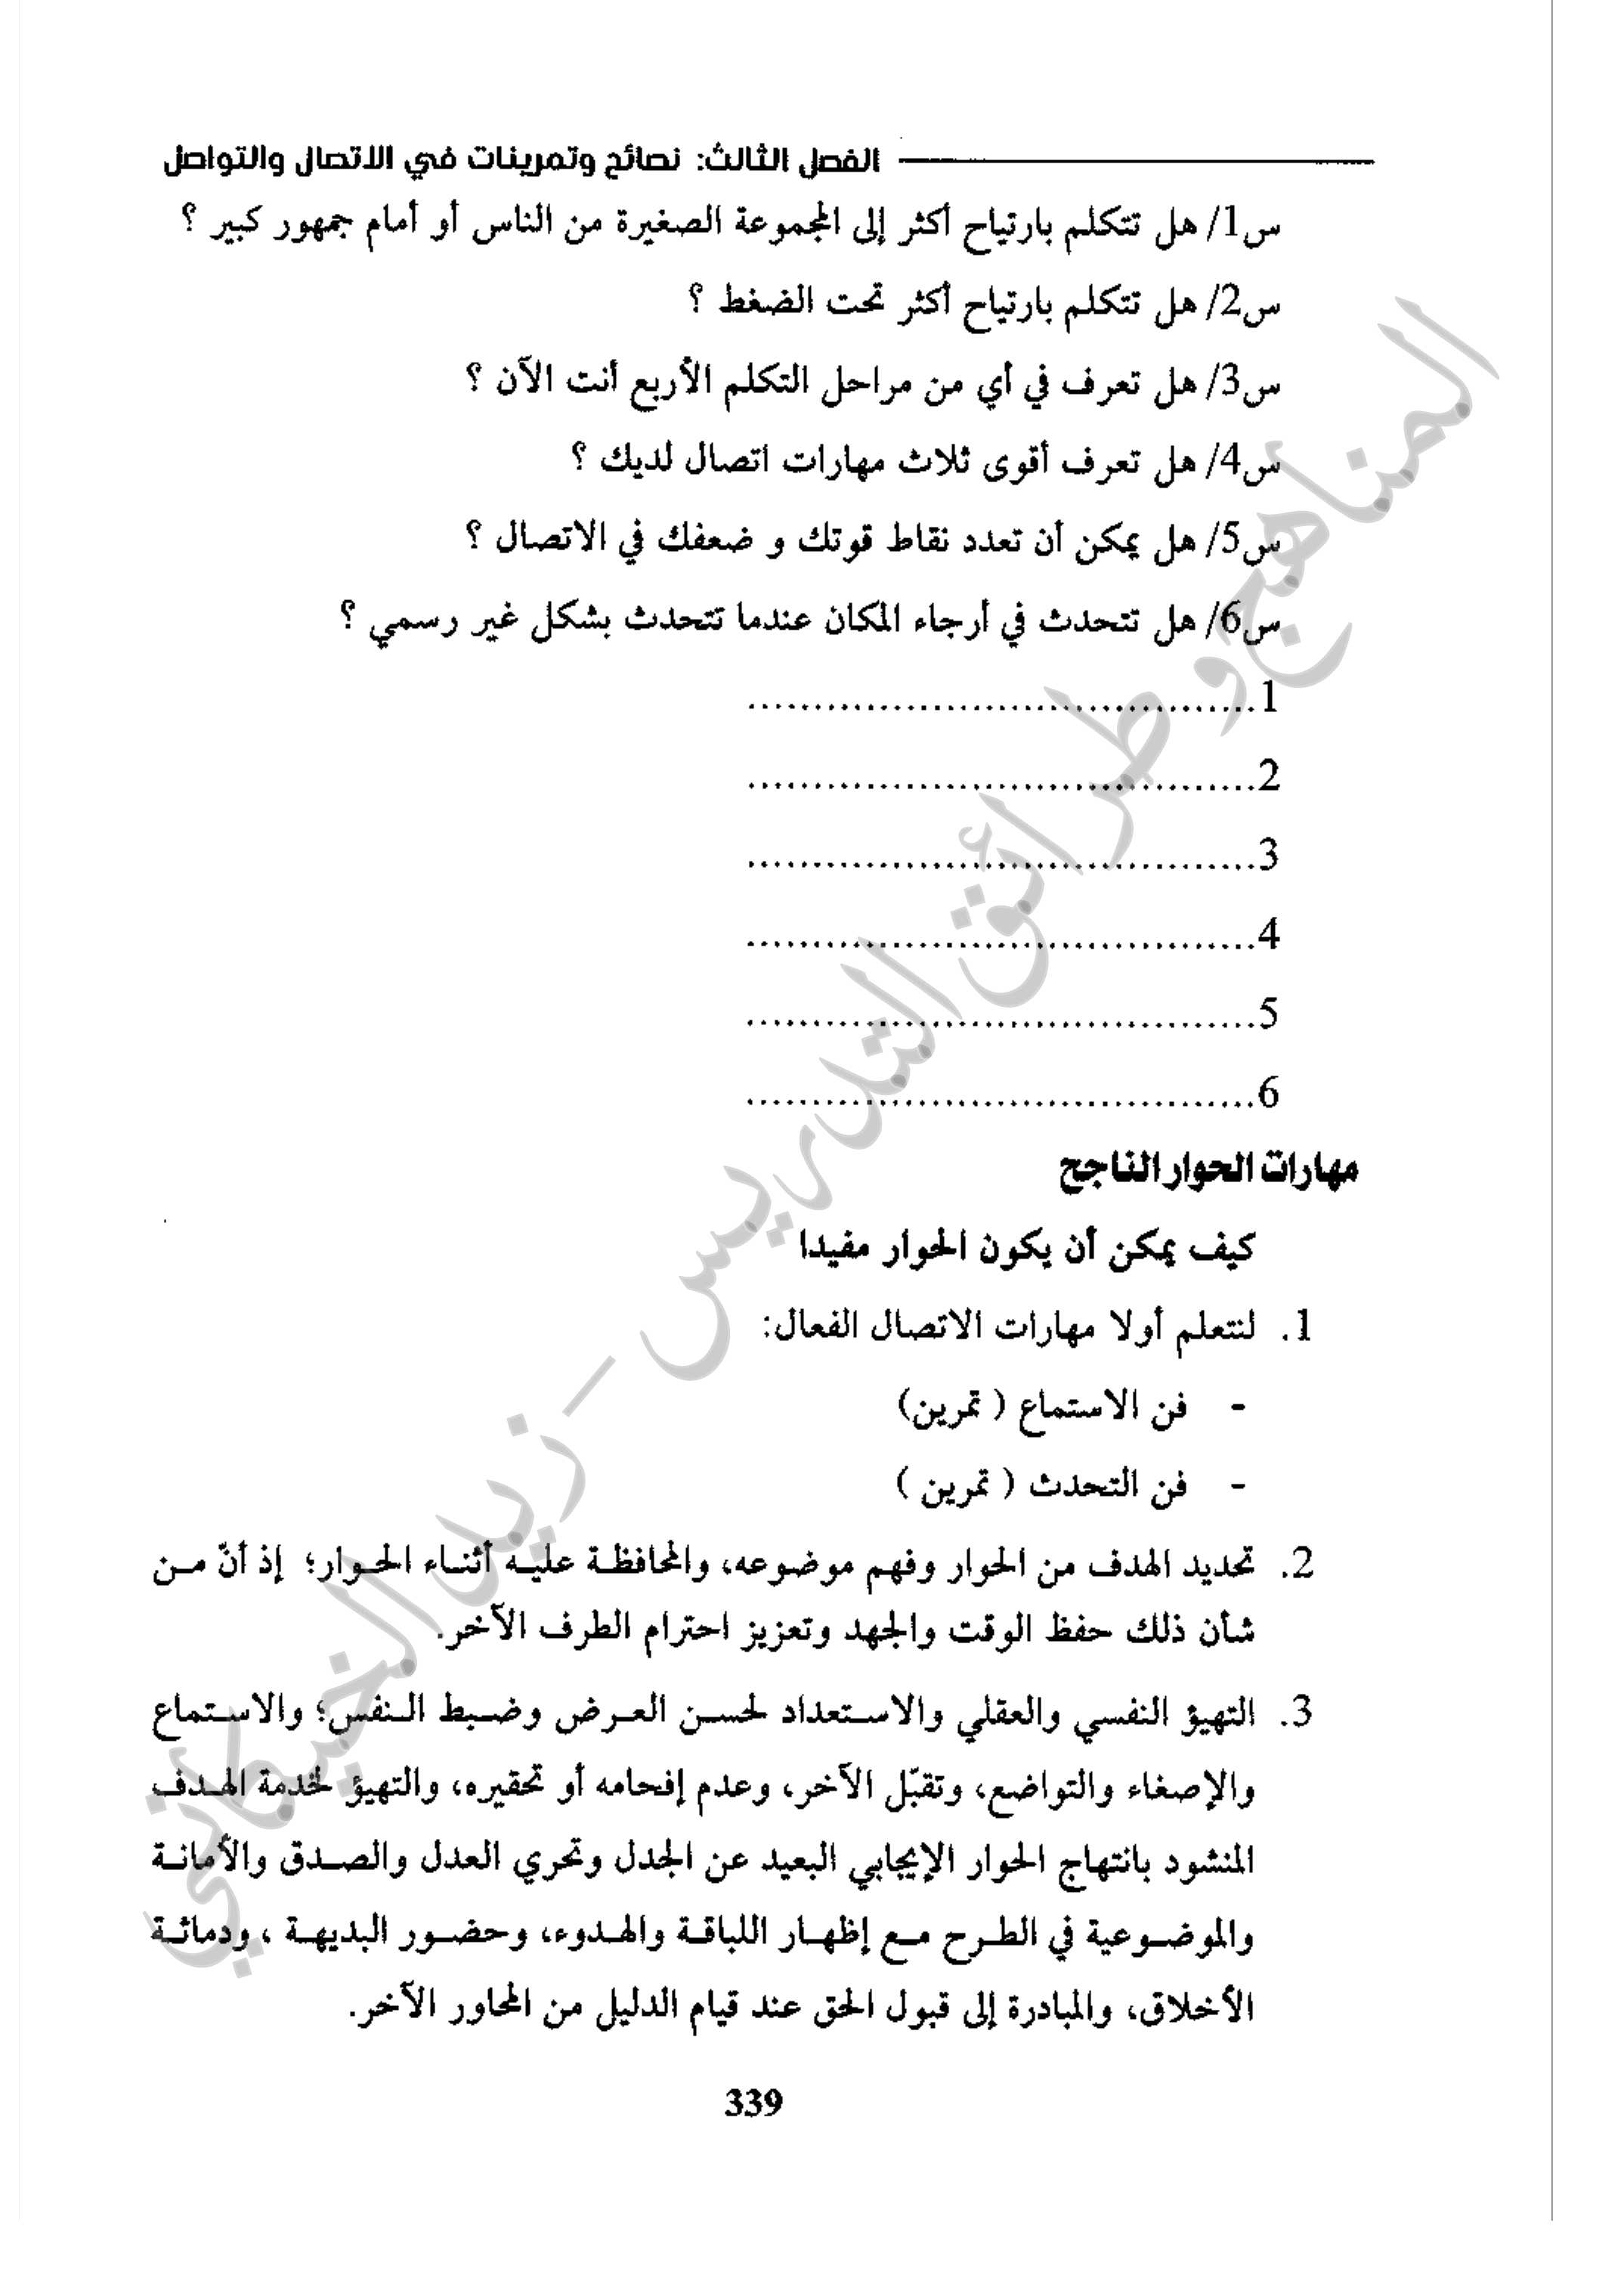 الفصل الثالث: نصائح وتمرينات في الاتصال والتواصل
س1/ هل تتكلم بارتياح أكثر إلى المجموعة الصغيرة من الناس أو أمام جمهور كبير ؟
س2/ هل تتكلم بارتياح أكثر تحت الضغط ؟
س3/ هل تعرف في أي من مراحل التكلم الأربع أنت الآن ؟
س4/ هل تعرف أقوى ثلاث مهارات اتصال لديك ؟
س5/ هل يمكن أن تعدد نقاط قوتك و ضعفك في الاتصال ؟
س6/ هل تتحدث في أرجاء المكان عندما تتحدث بشكل غير رسمي ؟
1.......................................
2.......................................
3.......................................
4.......................................
5.......................................
6.......................................
مهارات الحوار الناجح
كيف يمكن أن يكون الحوار مفيدا
1. لنتعلم أولا مهارات الاتصال الفعال:
- فن الاستماع ( تمرين)
- فن التحدث ( تمرين )
2. تحديد الهدف من الحوار وفهم موضوعه، والمحافظة عليه أثناء الحوار؛ إذ أنّ من
شأن ذلك حفظ الوقت والجهد وتعزيز احترام الطرف الآخر.
3. التهيؤ النفسي والعقلي والاستعداد لحسن العرض وضبط النفس؛ والاستماع
والإصغاء والتواضع، وتقبّل الآخر، وعدم إفحامه أو تحقيره، والتهيؤ لخدمة الهدف
المنشود بانتهاج الحوار الإيجابي البعيد عن الجدل وتحري العدل والصدق والأمانة
والموضوعية في الطرح مع إظهار اللباقة والهدوء، وحضور البديهة ، ودماثة
الأخلاق، والمبادرة إلى قبول الحق عند قيام الدليل من المحاور الآخر.
339
المناهج و طرائق التدريس – زيد الخيكاني